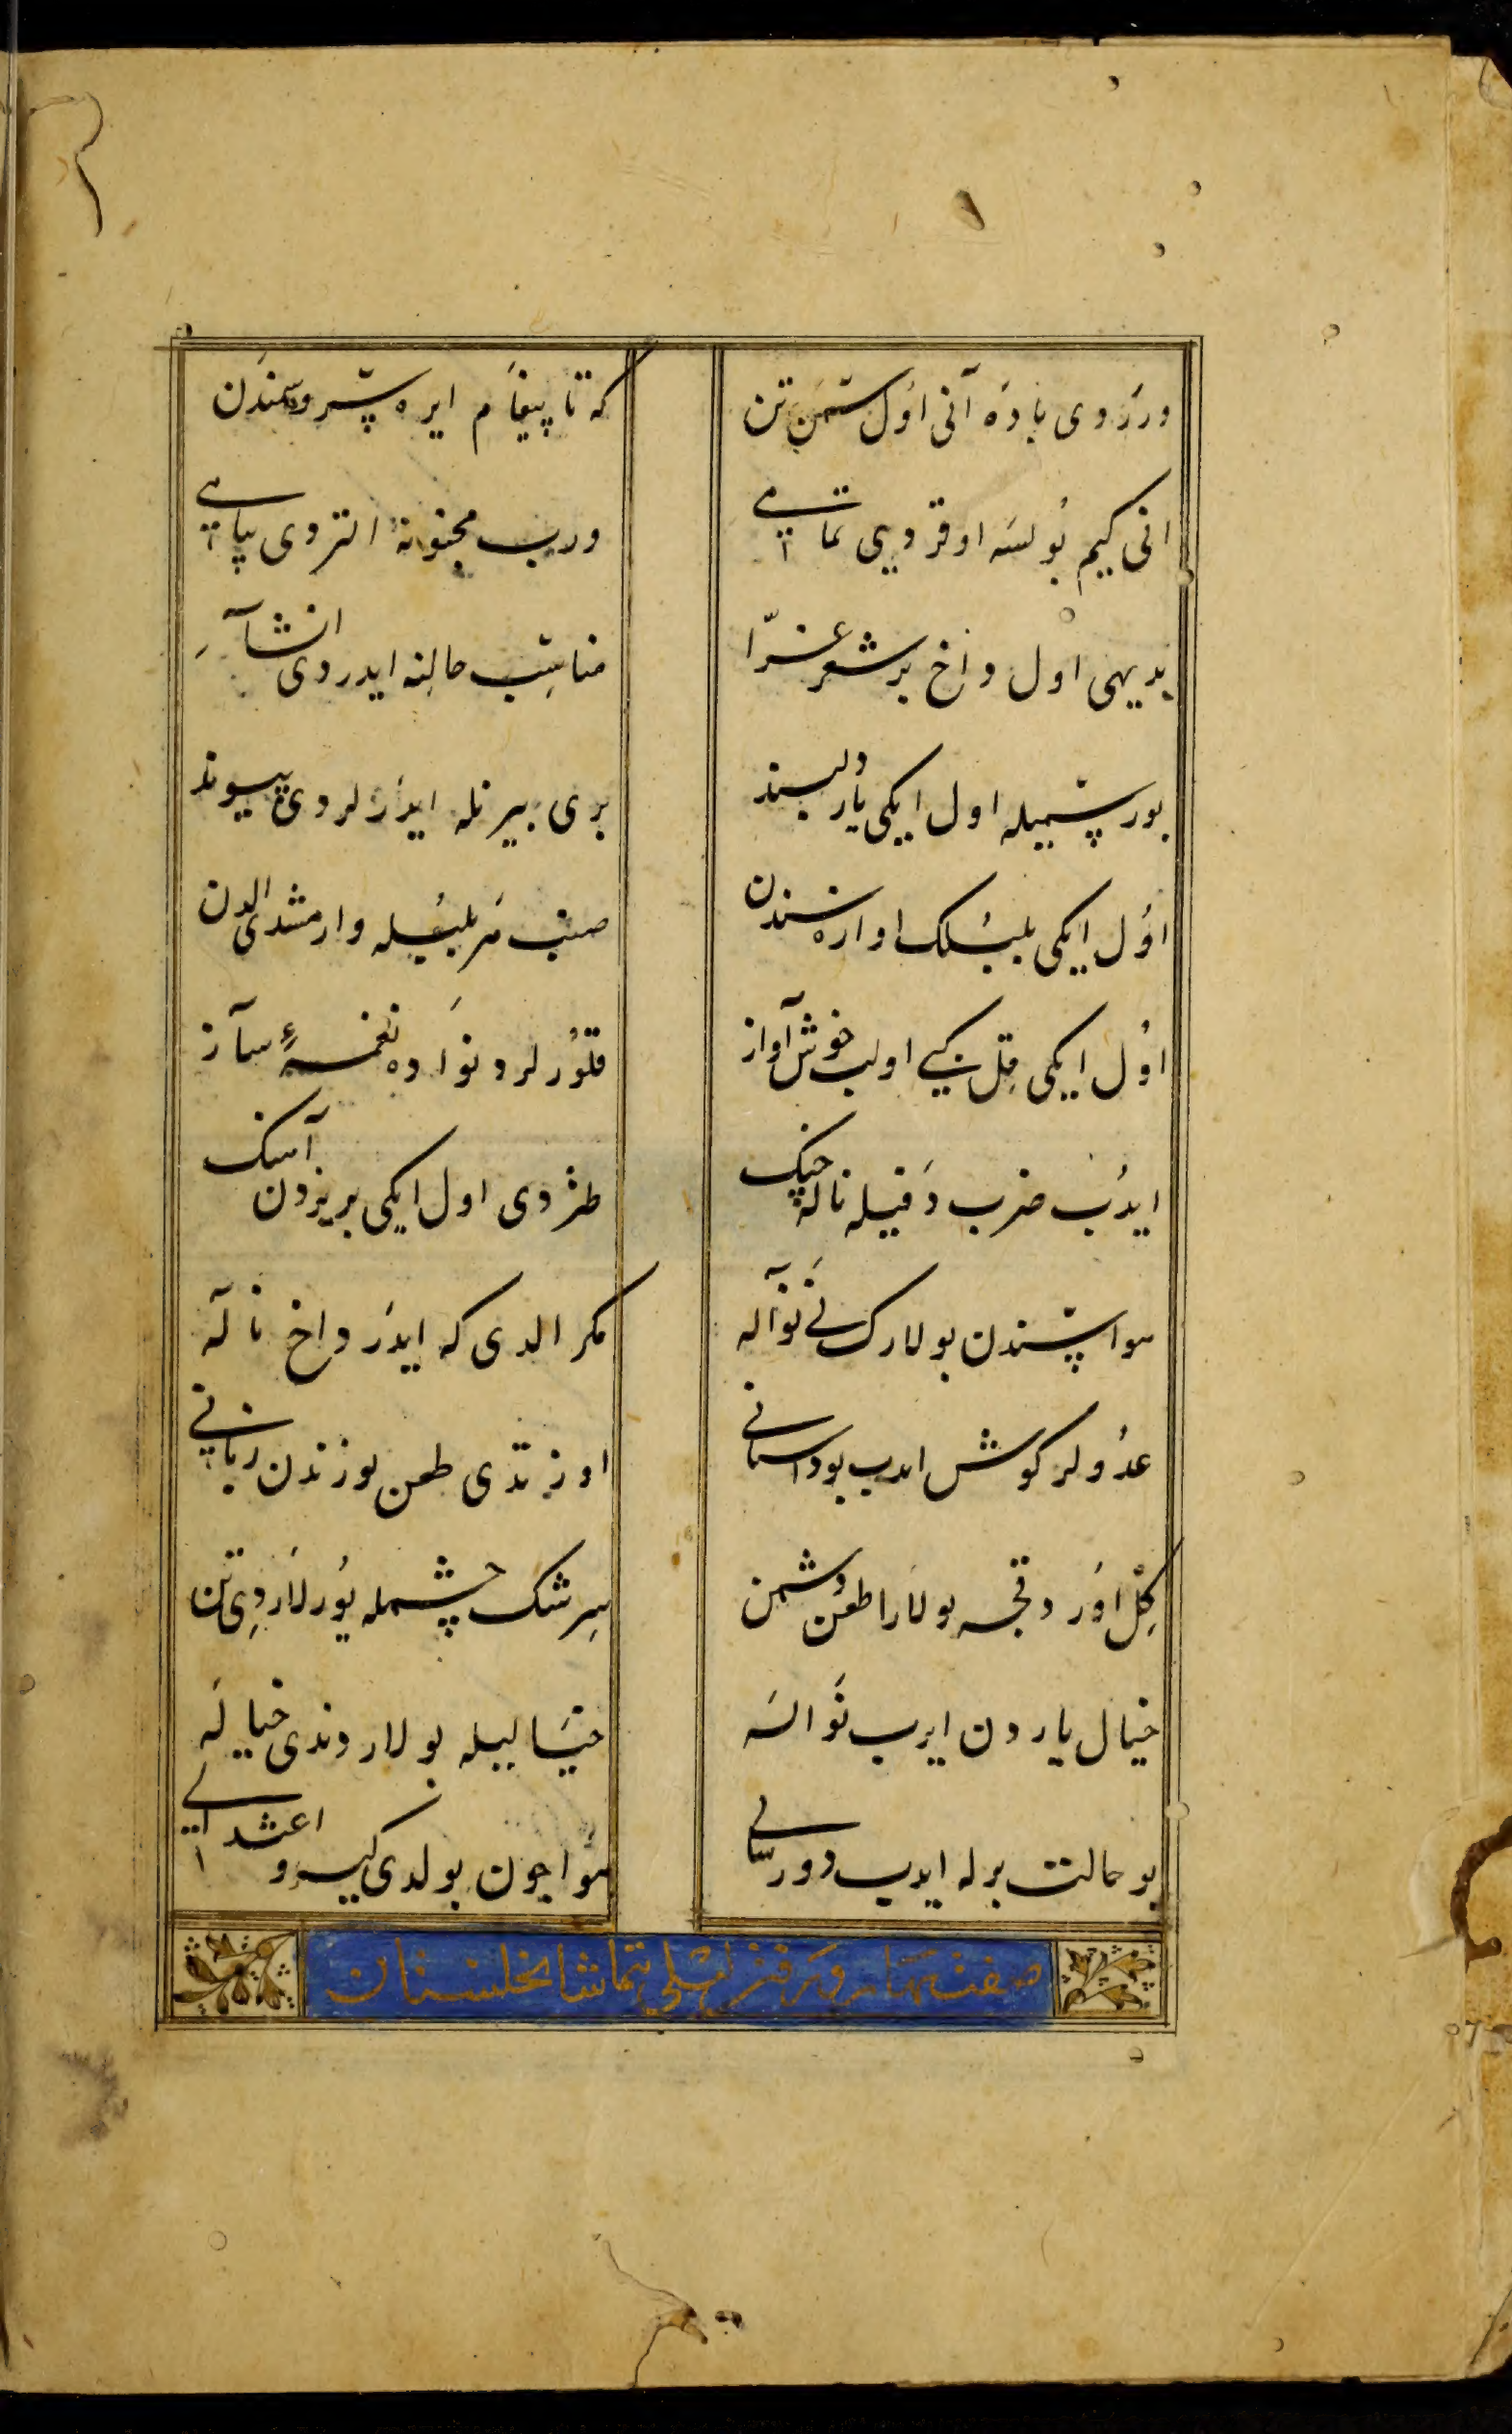 وررَدی باده آنی اول سمن تن
که تا پیغام ایره سرو سمندن
انی کیم بولسه اوقردی تمامی
وریب مجنونه التردی پیامی
بدیهی اول داخ بر شعر غرّا
مناسب حالنه ایدردی انشآء
بو رسمیله اول ایکی یار دلبند
بری بیرنله ایدرلردی پیوند
اول ایکی بلبلک اواره سندن
اول ایکی قل کی اولب خوش آواز
قلورلردنواده نغمهٔ ساز
ایدب ضرب دفیله ناله چنک
طردی اول ایکی بریردن آهنک
هواسندن بولارک نی نواله
مکر الدی که ایدر داخ ناله
عدولر کوش ایدب بو داستانی
اوزتدی طعن یوزندن زبانی
کل اوردقجه بولارا طعن دشمن
سرشک چشمله یورلاردی تن
خیال یاردن ایرب نواله
خیالیله بولار دوندی خیاله
بو حالت برله ایدب دور سالی
هوا چون بولدی کیرو اعتدالی
صفت بهار و رفتن لیلی بتماشا نخلستان